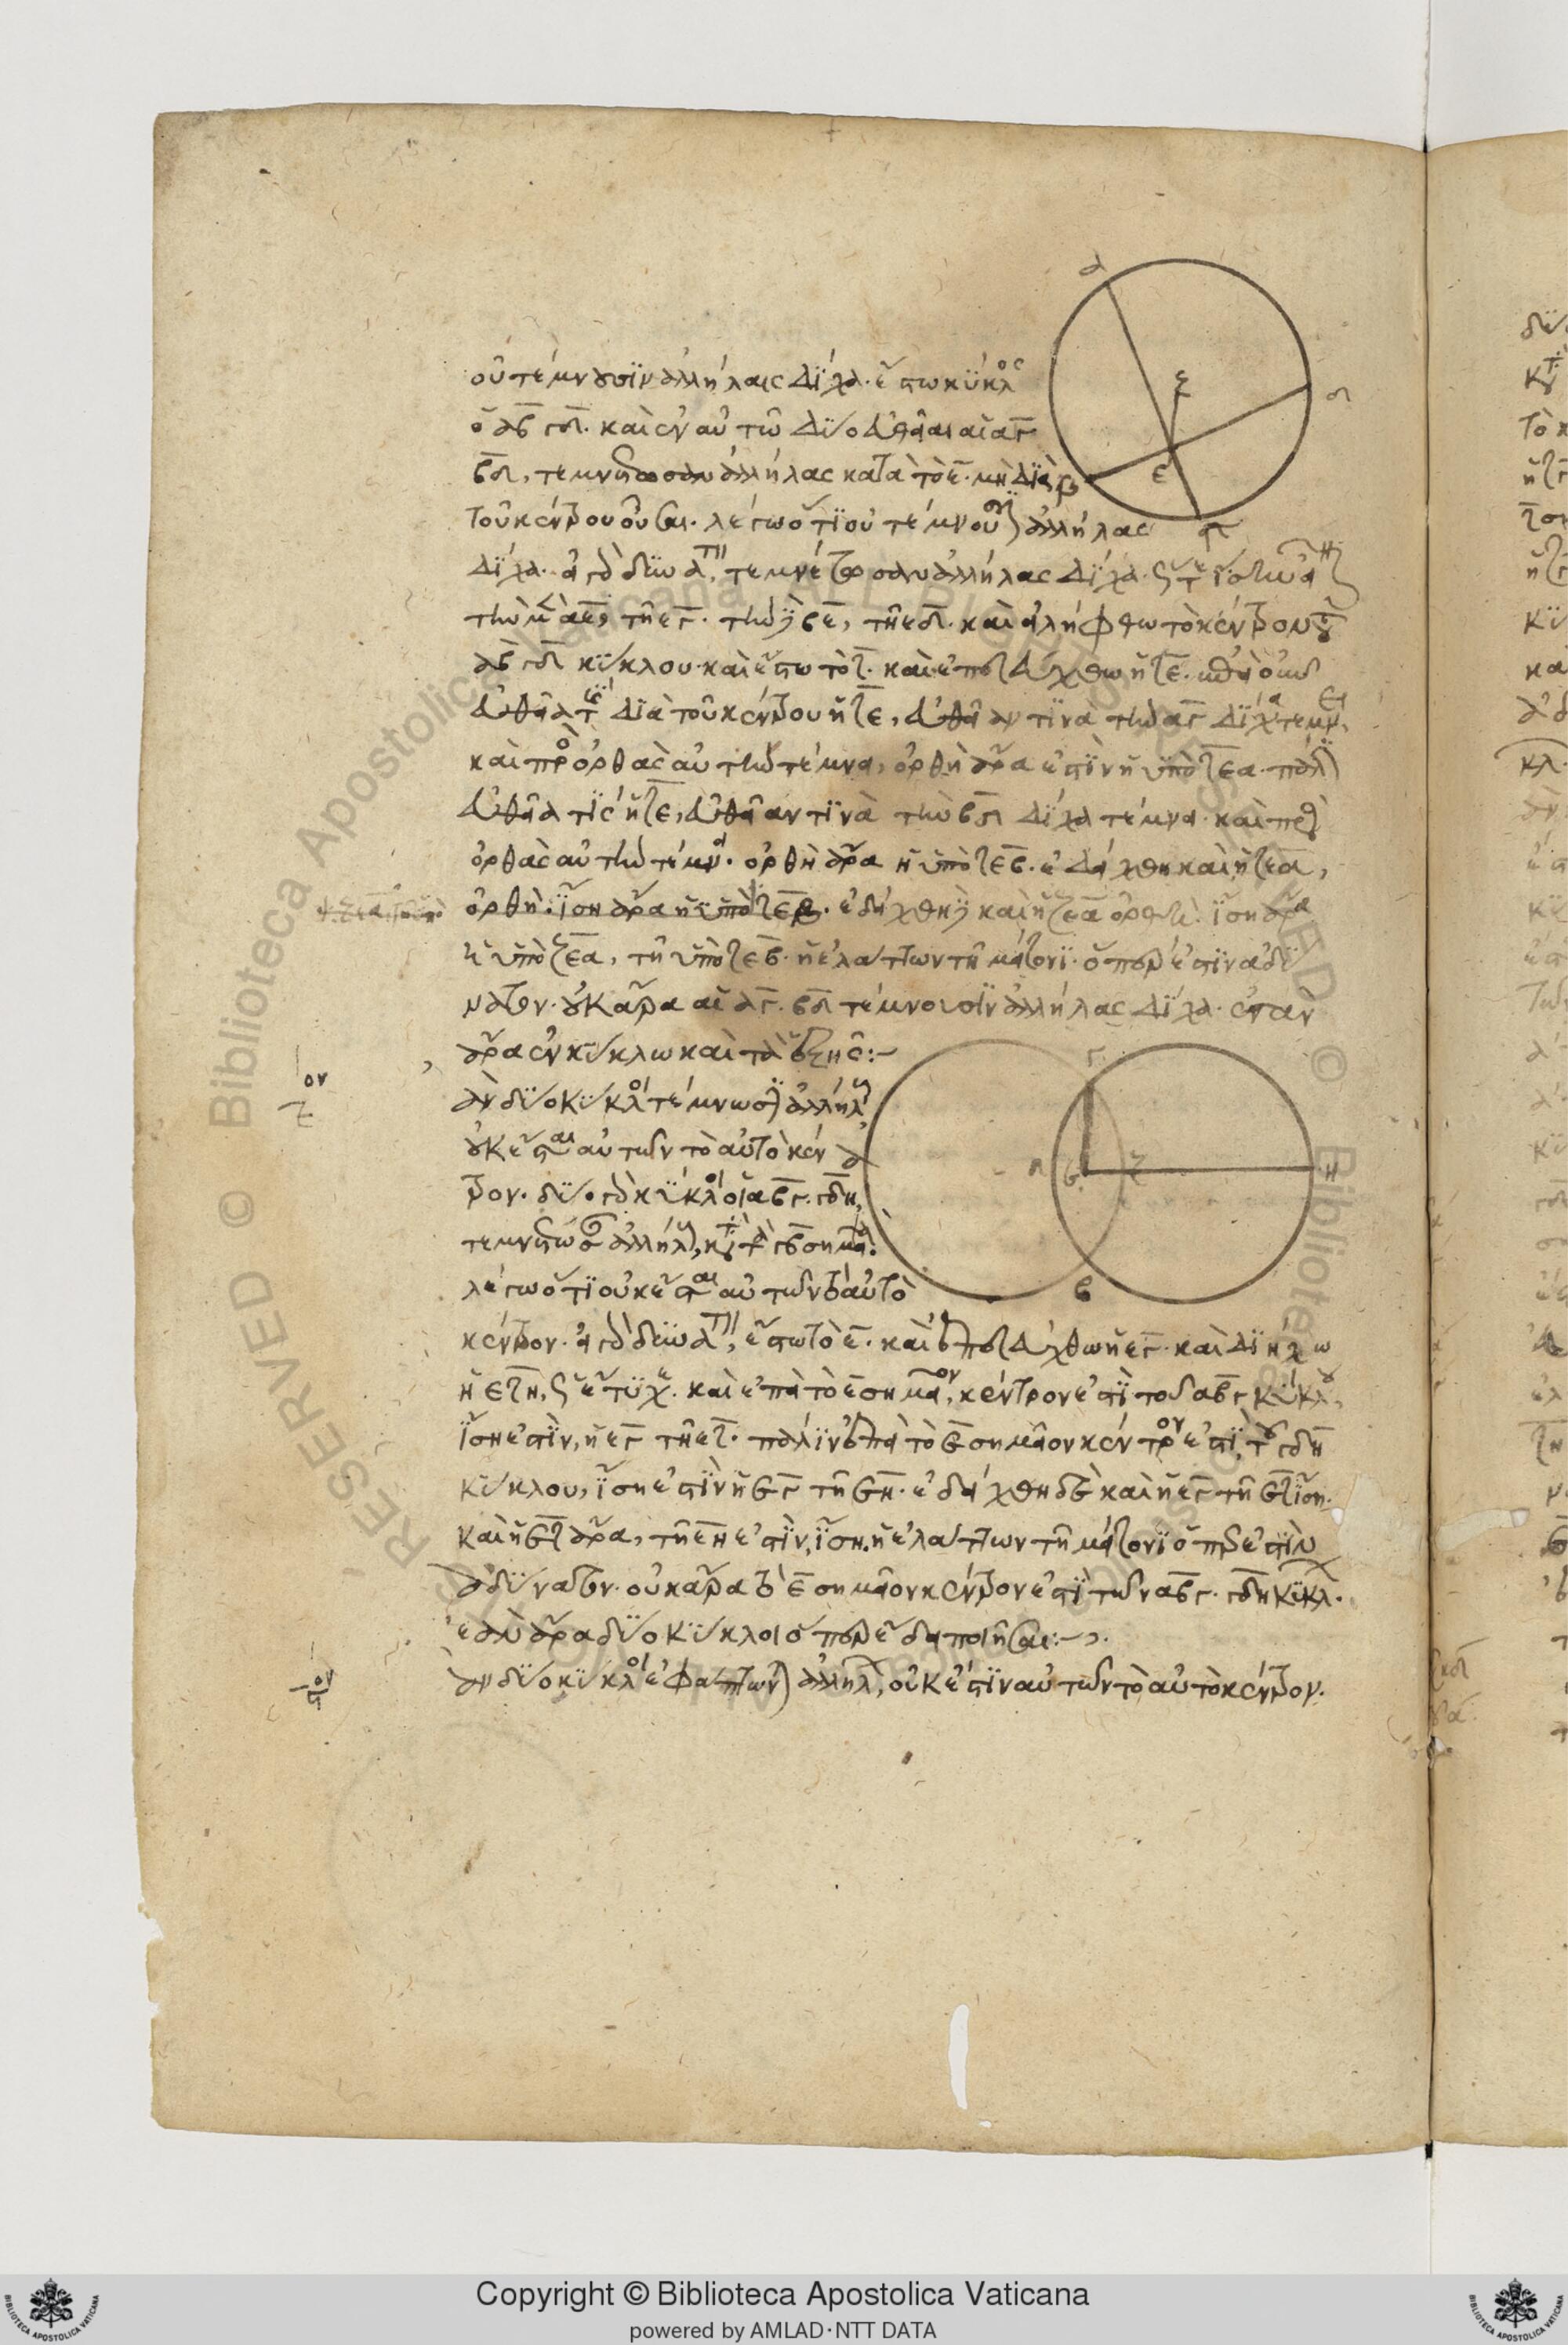 οὐ τέμνουσιν ἀλλήλας δίχα. ἔστω κύκλος
ὁ αβγδ. καὶ ἐν αὐτῷ δύο εὐθεῖαι αἱ αγ
βδ, τεμνέτωσαν ἀλλήλας κατὰ τὸ ε. μὴ διὰ
τοῦ κέντρου οὖσαι. λέγω ὅτι οὐ τέμνουσιν ἀλλήλας
δίχα. εἰ γὰρ δυνατὸν, τεμνέτωσαν ἀλλήλας δίχα. ὥστε ἴσην εἶναι
τὴν μὲν αε, τῇ εγ. τὴν δὲ βε, τῇ εδ. καὶ εἰλήφθω τὸ κέντρον τοῦ
αβγδ κύκλου. καὶ ἔστω τὸ ζ. καὶ ἐπεζεύχθω ἡ ζε. ἐπεὶ οὖν
εὐθεῖά τις διὰ τοῦ κέντρου ἡ ζε, εὐθεῖάν τινα τὴν αγ δίχα τέμνει,
καὶ πρὸς ὀρθὰς αὐτὴν τέμνει, ὀρθὴ ἄρα ἐστὶν ἡ ὑπὸ ζεα. πάλιν
εὐθεῖά τις ἡ ζε, εὐθεῖάν τινὰ τὴν βδ δίχα τέμνει. καὶ πρὸς
ὀρθὰς αὐτὴν τέμνει. ὀρθὴ ἄρα ἡ ὑπὸ ζεβ. ἐδείχθη καὶ ἡ ζεα,
ὀρθή. ἴση ἄρα ἡ ὑπὸ ζεβ. ἐδείχθη δὲ καὶ ἡ ζεα ὀρθή. ἴση ἄρα
ἡ ὑπὸ ζεα, τῇ ὑπὸ ζεβ. ἡ ἐλάττων τῇ μείζονι. ὅπερ ἐστὶν ἀδύ
νατον. οὐκ ἄρα αἱ αγ. βδ τέμνουσιν ἀλλήλας δίχα. ἐὰν
ἄρα ἐν κύκλω καὶ τὰ ἑξῆς:
ὸν
ζ
ἐὰν δύο κύκλοι τέμνωσιν ἀλλήλους
οὐκ ἔσται αὐτῶν τὸ αὐτὸ κέν
τρον. δύο γὰρ κύκλοι οἱ αβγ. γδη,
τεμνέτωσαν ἀλλήλους, κατὰ τὰ γβ σημεῖα.
λέγω ὅτι οὐκ ἔσται αὐτῶν τὸ αὐτὸ
κέντρον. εἰ γὰρ δυνατὸν, ἔστω τὸ ε. καὶ ἐπεζεύχθω ἡ εγ. καὶ διήχθω
ἡ εζη, ὡς ἔτυχε. καὶ ἐπεὶ τὸ ε σημεῖον, κέντρον ἐστὶ τοῦ αβγ κύκλου,
ἴση ἐστὶν, ἡ εγ τῇ εζ. πάλιν ἐπεὶ τὸ ε σημεῖον κέντρον ἐστὶ τοῦ γδη
κύκλου, ἴση ἐστὶν ἡ εγ τῇ εη. ἐδείχθη δὲ καὶ ἡ εγ τῇ εζ ἴση.
καὶ ἡ εζ ἄρα, τῇ εη ἐστὶν, ἴση. ἡ ἐλάττων τῇ μείζονι ὅπερ ἐστὶν
ἀδύνατον. οὐκ ἄρα τὸ ε σημεῖον κέντρον ἐστὶ τῶν αβγ. γδη κύκλων.
ἐὰν ἄρα δύο κύκλοι ὅπερ ἔδει ποιῆσαι:
ὸν
ἐὰν δύο κύκλοι ἐφάπτωνται ἀλλήλων, οὐκ ἔστιν αὐτῶν τὸ αὐτὸ κέντρον.
α
ζ
δ
β
ε
γ
γ
α
δ
ε
ζ
η
β
Biblioteca Apostolica Vaticana ALL RIGHTS RESERVED ©
Copyright © Biblioteca Apostolica Vaticana
powered by AMLAD·NTT DATA
BIBLIOTECA APOSTOLICA VATICANA